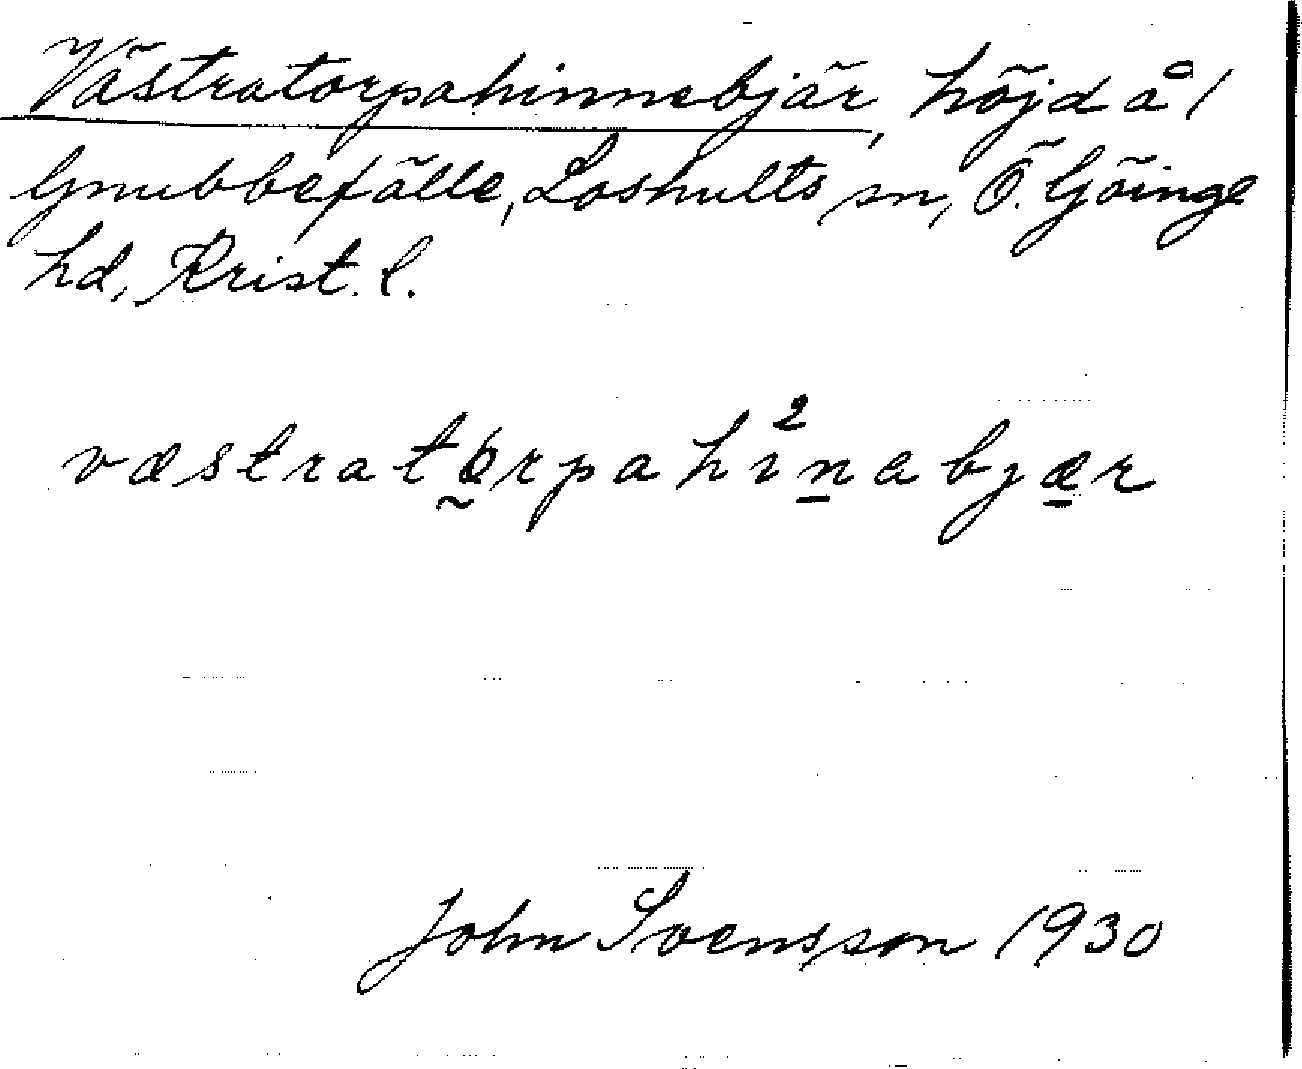 Västratorpahinnebjär, höjd å 1
Gnubbefälle, Loshults sn, Ö. Göinge
hd, Krist. l.
væstratørpahı²n̲abjæ̲r
John Svensson 1930